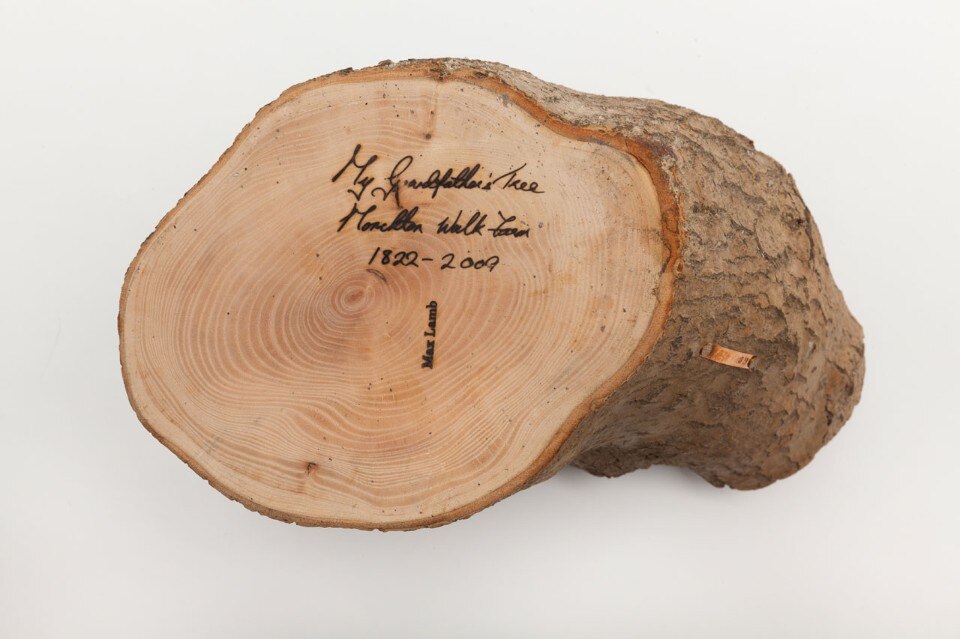 My Grandfather's Tree
Monckton Walk Farm
1822-2009
Max Lamb